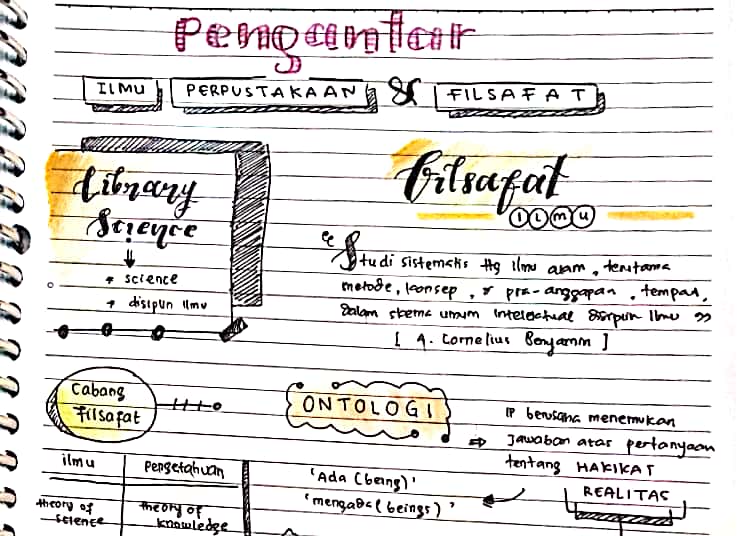 Pengantar
ILMU PERPUSTAKAAN & FILSAFAT
Library
Science
science
disipun Ilmu
filsafat
ILMU
" Studi sistematis ttg Ilmu alam, terutama
metode, konsep, & pra-anggapan, tempat,
dalam skema umum Intelektual disipun Ilmu "
[ A. Cornelius Benyamin ]
Cabang
Filsafat
ONTOLOGI
IP berusaha menemukan
⇒ Jawaban atas pertanyaan
tentang HAKIKAT
REALITAS
ilmu
pengetahuan
theory of
science
theory of
knowledge
'Ada (being)'
'mengada (beings)'